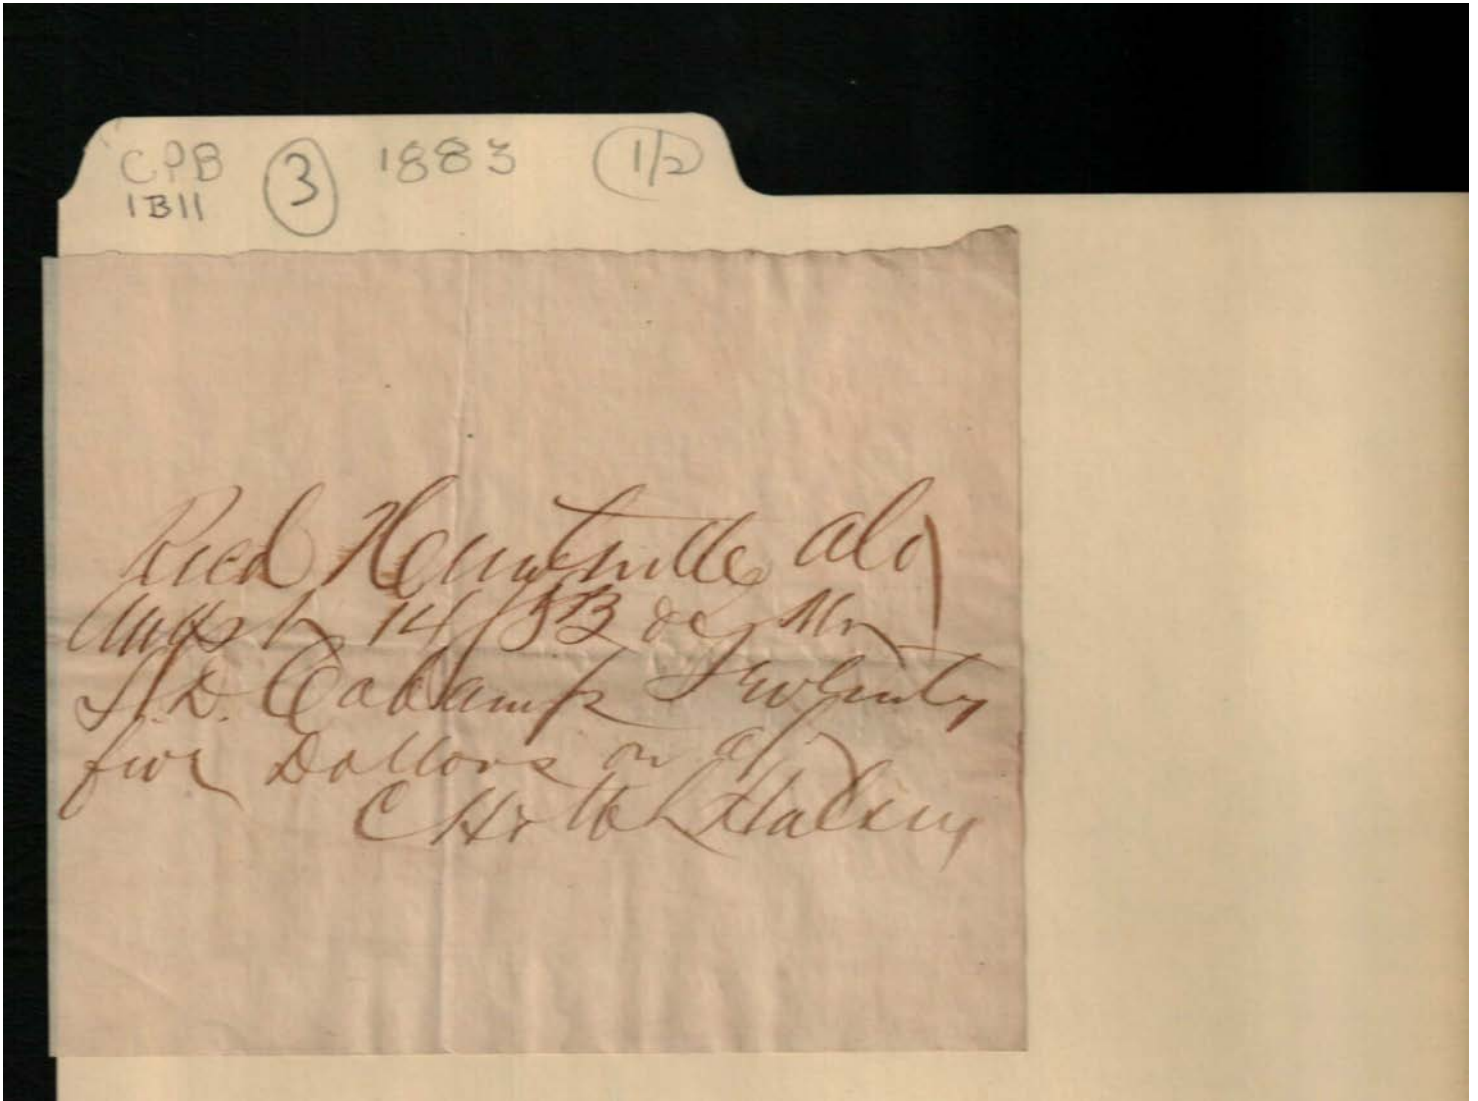 CPB ③ 1883 1/2
1B11
Recd Huntsville Ala
August 14 /83 of Mr
S. D. Cabaniss Seventy
five Dollars on a/
C H & W L Halsey